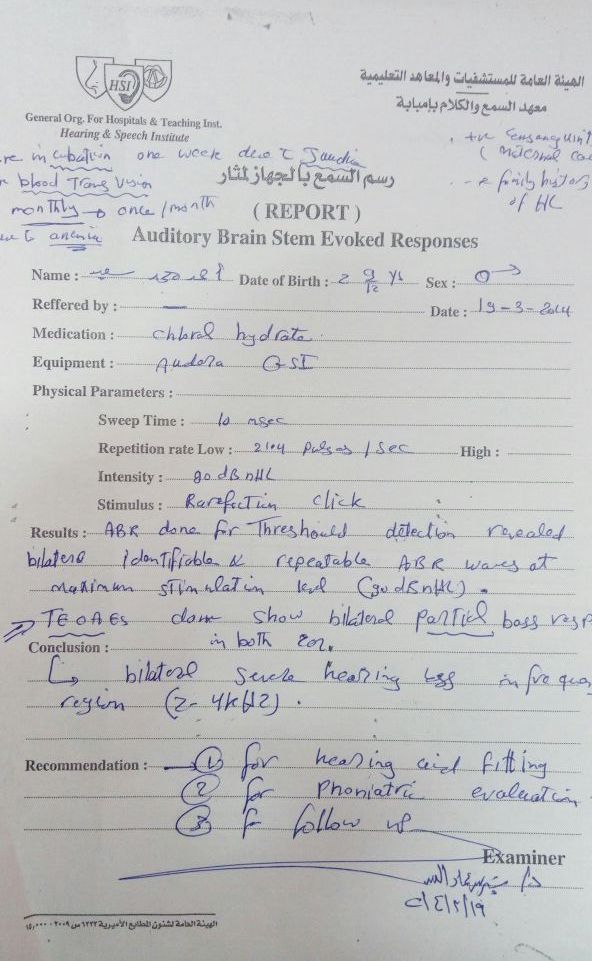 الهيئة العامة للمستشفيات والمعاهد التعليمية
معهد السمع والكلام بإمبابة
HSI
General Org. For Hospitals & Teaching Inst.
Hearing & Speech Institute
+ve Consanguinity
(Maternal
in cubation one week due to Jaundice
blood Trans Vision
monthly → once/month
anemia
family history of HL
رسم السمع بالجهاز لمثار
( REPORT )
Auditory Brain Stem Evoked Responses
Name : Date of Birth : 2 9/12 Ys Sex : ♂
Reffered by : — Date : 19-3-2014
Medication : chloral hydrate
Equipment : Audera GSI
Physical Parameters :
Sweep Time : 10 msec
Repetition rate Low : 21.4 pulses / sec High :
Intensity : 90 dBnHL
Stimulus : Rarefaction click
Results : ABR done for Threshould detection revealed
bilateral identifiable & repeatable ABR waves at
maximum stimulation level (90 dBnHL).
TEOAEs done show bilateral partial
in both
Conclusion :
bilateral severe hearing loss in
region (2-4KHZ).
Recommendation : ① for hearing aid fitting
② for Phoniatric evaluation
③ for follow up
Examiner
الهيئة العامة لشئون المطابع الأميرية ٦٢٣٢ س ٢٠٠٩ - ١٥٫٠٠٠